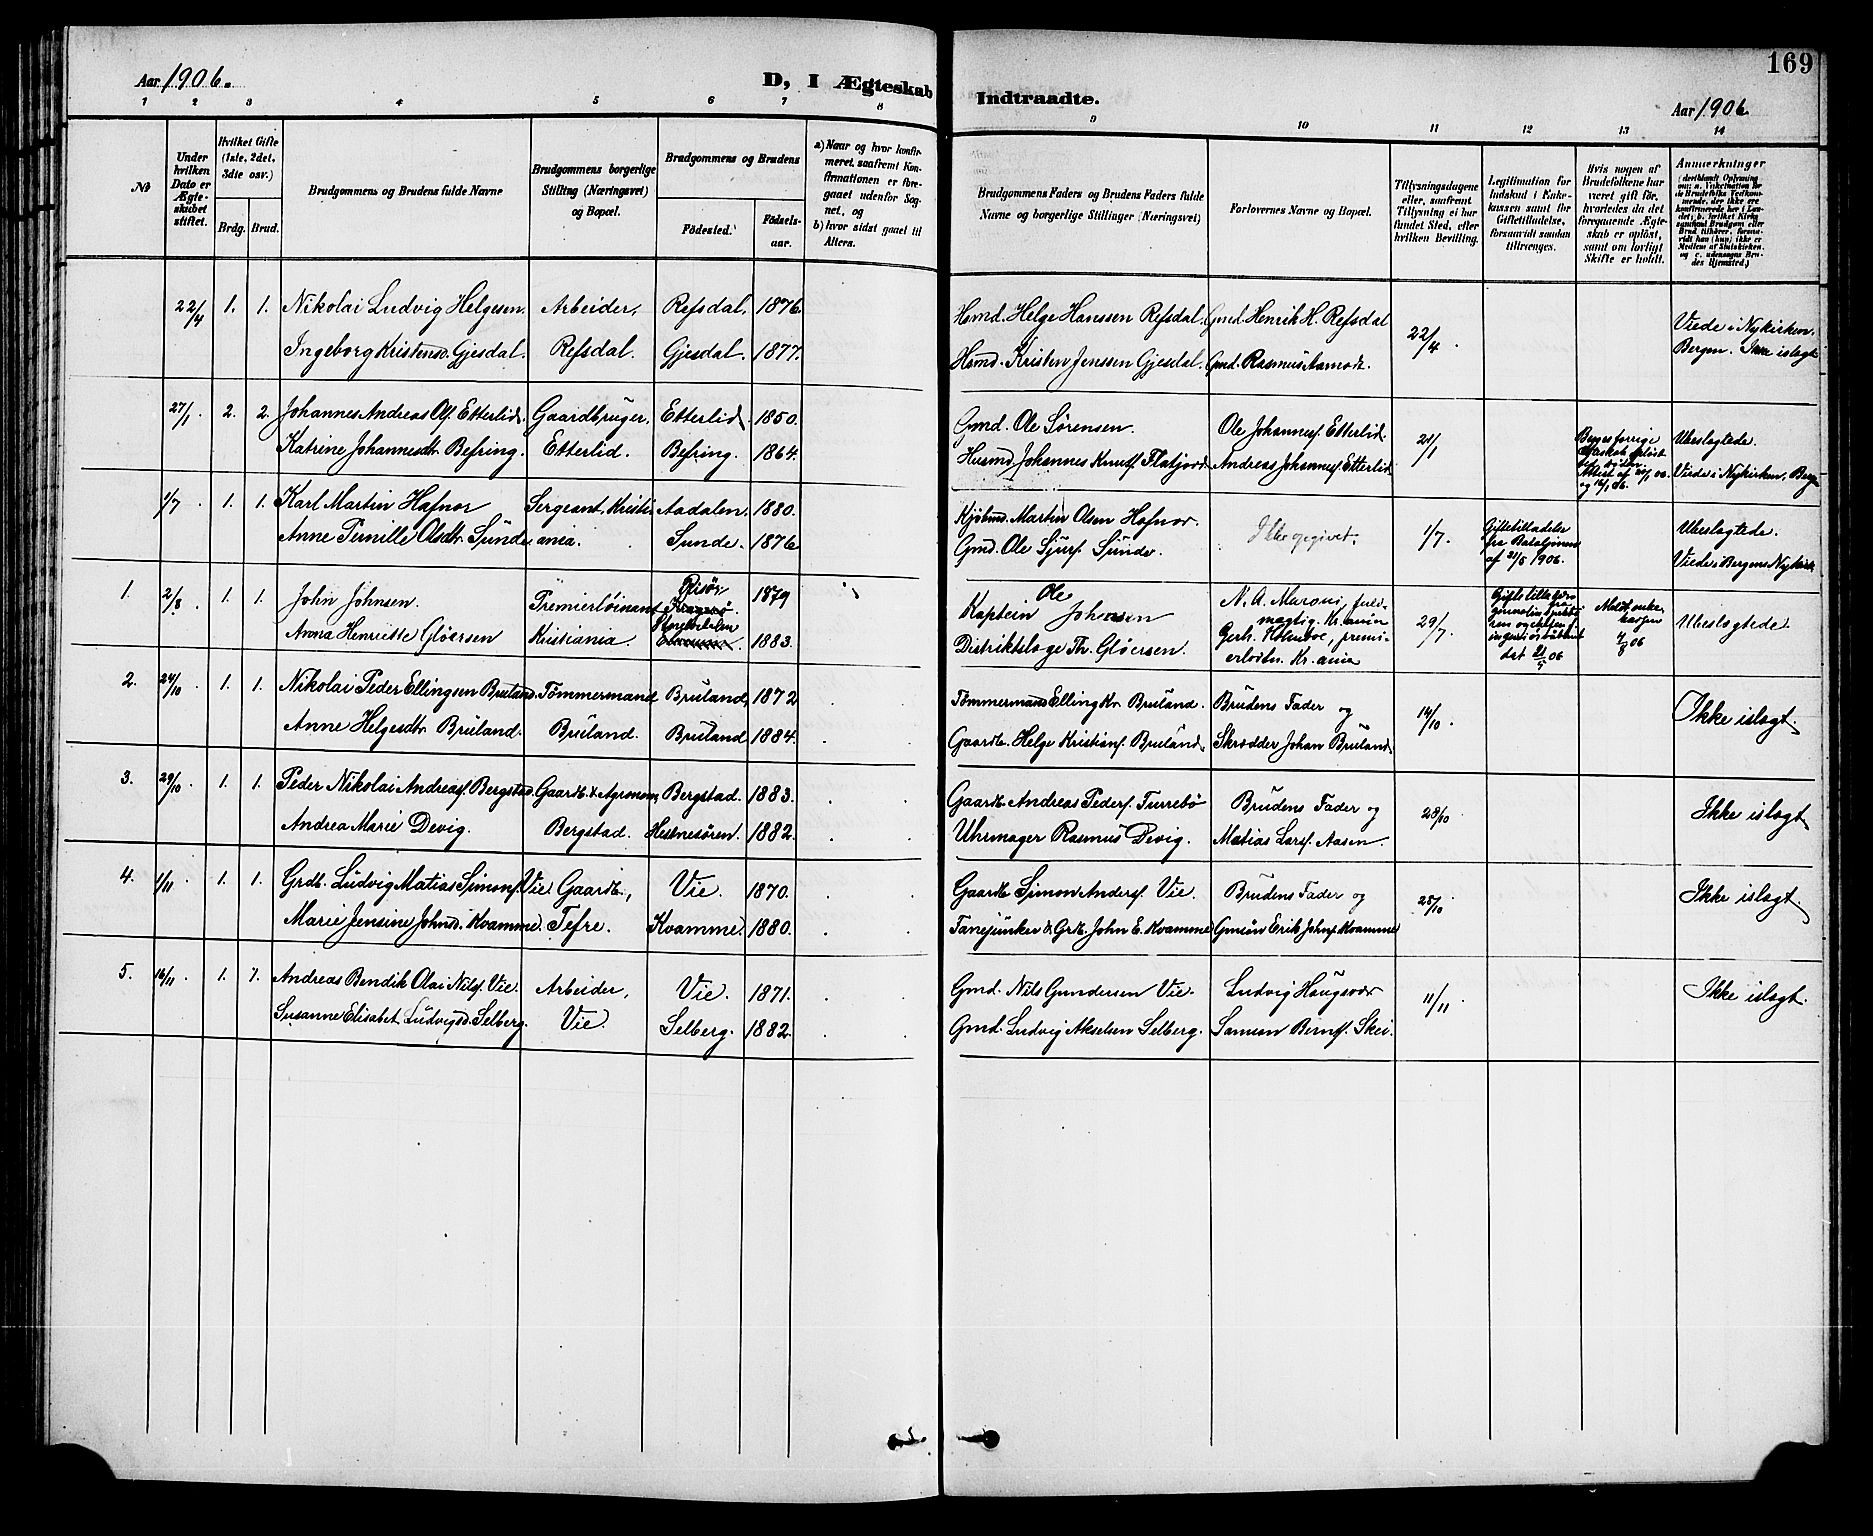 169
Aar 1906.
D, I Ægteskab Indtraadte.
Aar 1906.
1 2 3 4 5 6 7 8 9 10 11 12 13 14
№
Under hvilken Dato er Ægteskabet stiftet.
Hvilket Gifte (1ste, 2det, 3die osv.)
Brdg. Brud.
Brudgommens og Brudens fulde Navne
Brudgommens borgerlige Stilling (Næringsvei) og Bopæl.
Brudgommens og Brudens
Fødested. Fødselsaar.
a) Naar og hvor konfirmeret, saafremt Konfirmationen er foregaaet udenfor Sognet, og
b) hvor sidst gaaet til Alters.
Brudgommens Faders og Brudens Faders fulde Navne og borgerlige Stillinger (Næringsvei)
Forlovernes Navne og Bopæl.
Tillysningsdagene eller, saafremt Tillysning ei har fundet Sted, efter hvilken Bevilling.
Legitimation for Indskud i Enkekassen samt for Giftetilladelse, forsaavidt saadan tiltrænges.
Hvis nogen af Brudefolkene har været gift før, hvorledes da det foregaaende Ægteskab er opløst, samt om lovligt Skifte er holdt.
Anmærkninger
22/4 1. 1. Nikolai Ludvig Helgesen. Arbeider, Refsdal. 1876. Hsmd. Helge Hanssen Refsdal. Gmd. Henrik H. Refsdal 22/4 Viede i Nykirken.
Ingeborg Kristensd. Gjesdal. Refsdal. Gjesdal. 1877. Hsmd. Kristen Jenssen Gjesdal. Gmd. Rasmus Aamodt. Bergen. Ikke islægt
27/1 2. 2. Johannes Andreas Ols. Etterlid. Gaardbruger, Etterlid. 1850. Gmd. Ole Sørensen. Ole Johannesf. Etterlid. 21/1 Ubeslægtede
Katrine Johannesdtr. Befring. Etterlid. Befring. 1864. Husmd. Johannes Knuds. Flatjord Andreas Johannesf. Etterlid Viede i Nykirken, Bergen
1/7 1. 1. Karl Martin Hafnor Sergeant, Kristi- Aadalen. 1880. Kjøbmd. Martin Olsen Hafnor. Ikke opgivet. 1/7. Giftetilladelse fra Bataljonen af 21/5 1906. Ubeslægtede.
Anne Pernille Olsdtr. Sunde ania. Sunde. 1876 Gmd. Ole Sjurs. Sunde. Viede i Bergens Nykirk.
1. 2/8 1. 1. John Johnsen. Premierløitnant Risør 1879 Kaptein Ole Johnsen N. A. Maroni, fuldmægtig, Kr.ania 29/7. Ubeslægtede.
Anna Henriette Gløersen Kristiania 1883. Distriktslæge Th. Gløersen. Gerh. Holmboe, premierløitn. Kr.ania
2. 24/10 1. 1. Nikolai Peder Ellingsen Bruland. Tømmermand Bruland, 1872 Tømmermand Elling Kr. Bruland. Brudens Fader og 14/10. Ikke islægt.
Anne Helgesdtr. Bruland. Bruland. Bruland 1884. Gaardb. Helge Kristians. Bruland. Skrædder Johan Bruland.
3. 29/10 1. 1. Peder Nikolai Andreasf. Bergstad. Gaardb. & Agronom, Bergstad. 1883. Gaardb. Andreas Peders. Turrebø Brudens Fader og 28/10 Ikke islægt
Andrea Marie Devig. Bergstad. Hestnesøren. 1882. Uhrmager Rasmus Devig. Matias Larsf. Aasen.
4. 1/11 1. 1. Grdb. Ludvig Matias Simonf. Vie Gaardb., Vie. 1870. Gaardb. Simon Andersf. Vie. Brudens Fader og 28/10 Ikke islægt.
Marie Jensine Johnsd. Kvamme. Tefre. Kvamme. 1880. Fanejunker & Grdb. John E. Kvamme Gmsøn Erik Johnf. Kvamme
5. 16/11 1. 1. Andreas Bendik Olai Nilsf. Vie. Arbeider, Vie. 1871. Gmd. Nils Gundersen Vie. Ludvig Haugsvær 11/11 Ikke islægt.
Susanne Elisabet Ludvigsd. Selberg. Vie. Selberg. 1882. Gmd. Ludvig Akselsen Selberg. Samson Bernf. Skei.